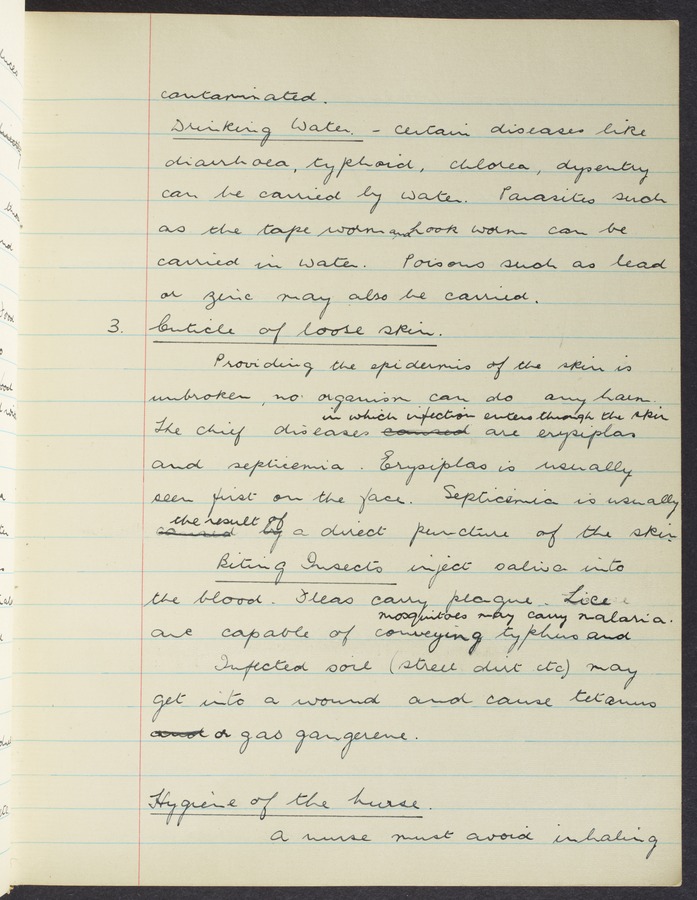 contaminated.
Drinking Water. - certain diseases like
diarrhoea, typhoid, chlorea, dysentry
can be carried by water. Parasites such
as the tape worm and hook worm can be
carried in water. Poisons such as lead
or zinc may also be carried.
3. Cuticle of loose skin.
Providing the epidermis of the skin is
unbroken, no organism can do any harm.
in which infection enters through the skin
The chief diseases caused are erysiplas
and septicemia. Erysiplas is usually
seen first on the face. Septicemia is usually
the result of
caused by a direct puncture of the skin
Biting Insects inject saliva into
the blood. Fleas carry plague. Lice
mosquitoes may carry malaria.
are capable of conveying typhus and
Infected soil (street dirt etc) may
get into a wound and cause tetanus
and or gas gangerene.
Hygiene of the nurse.
A nurse must avoid inhaling